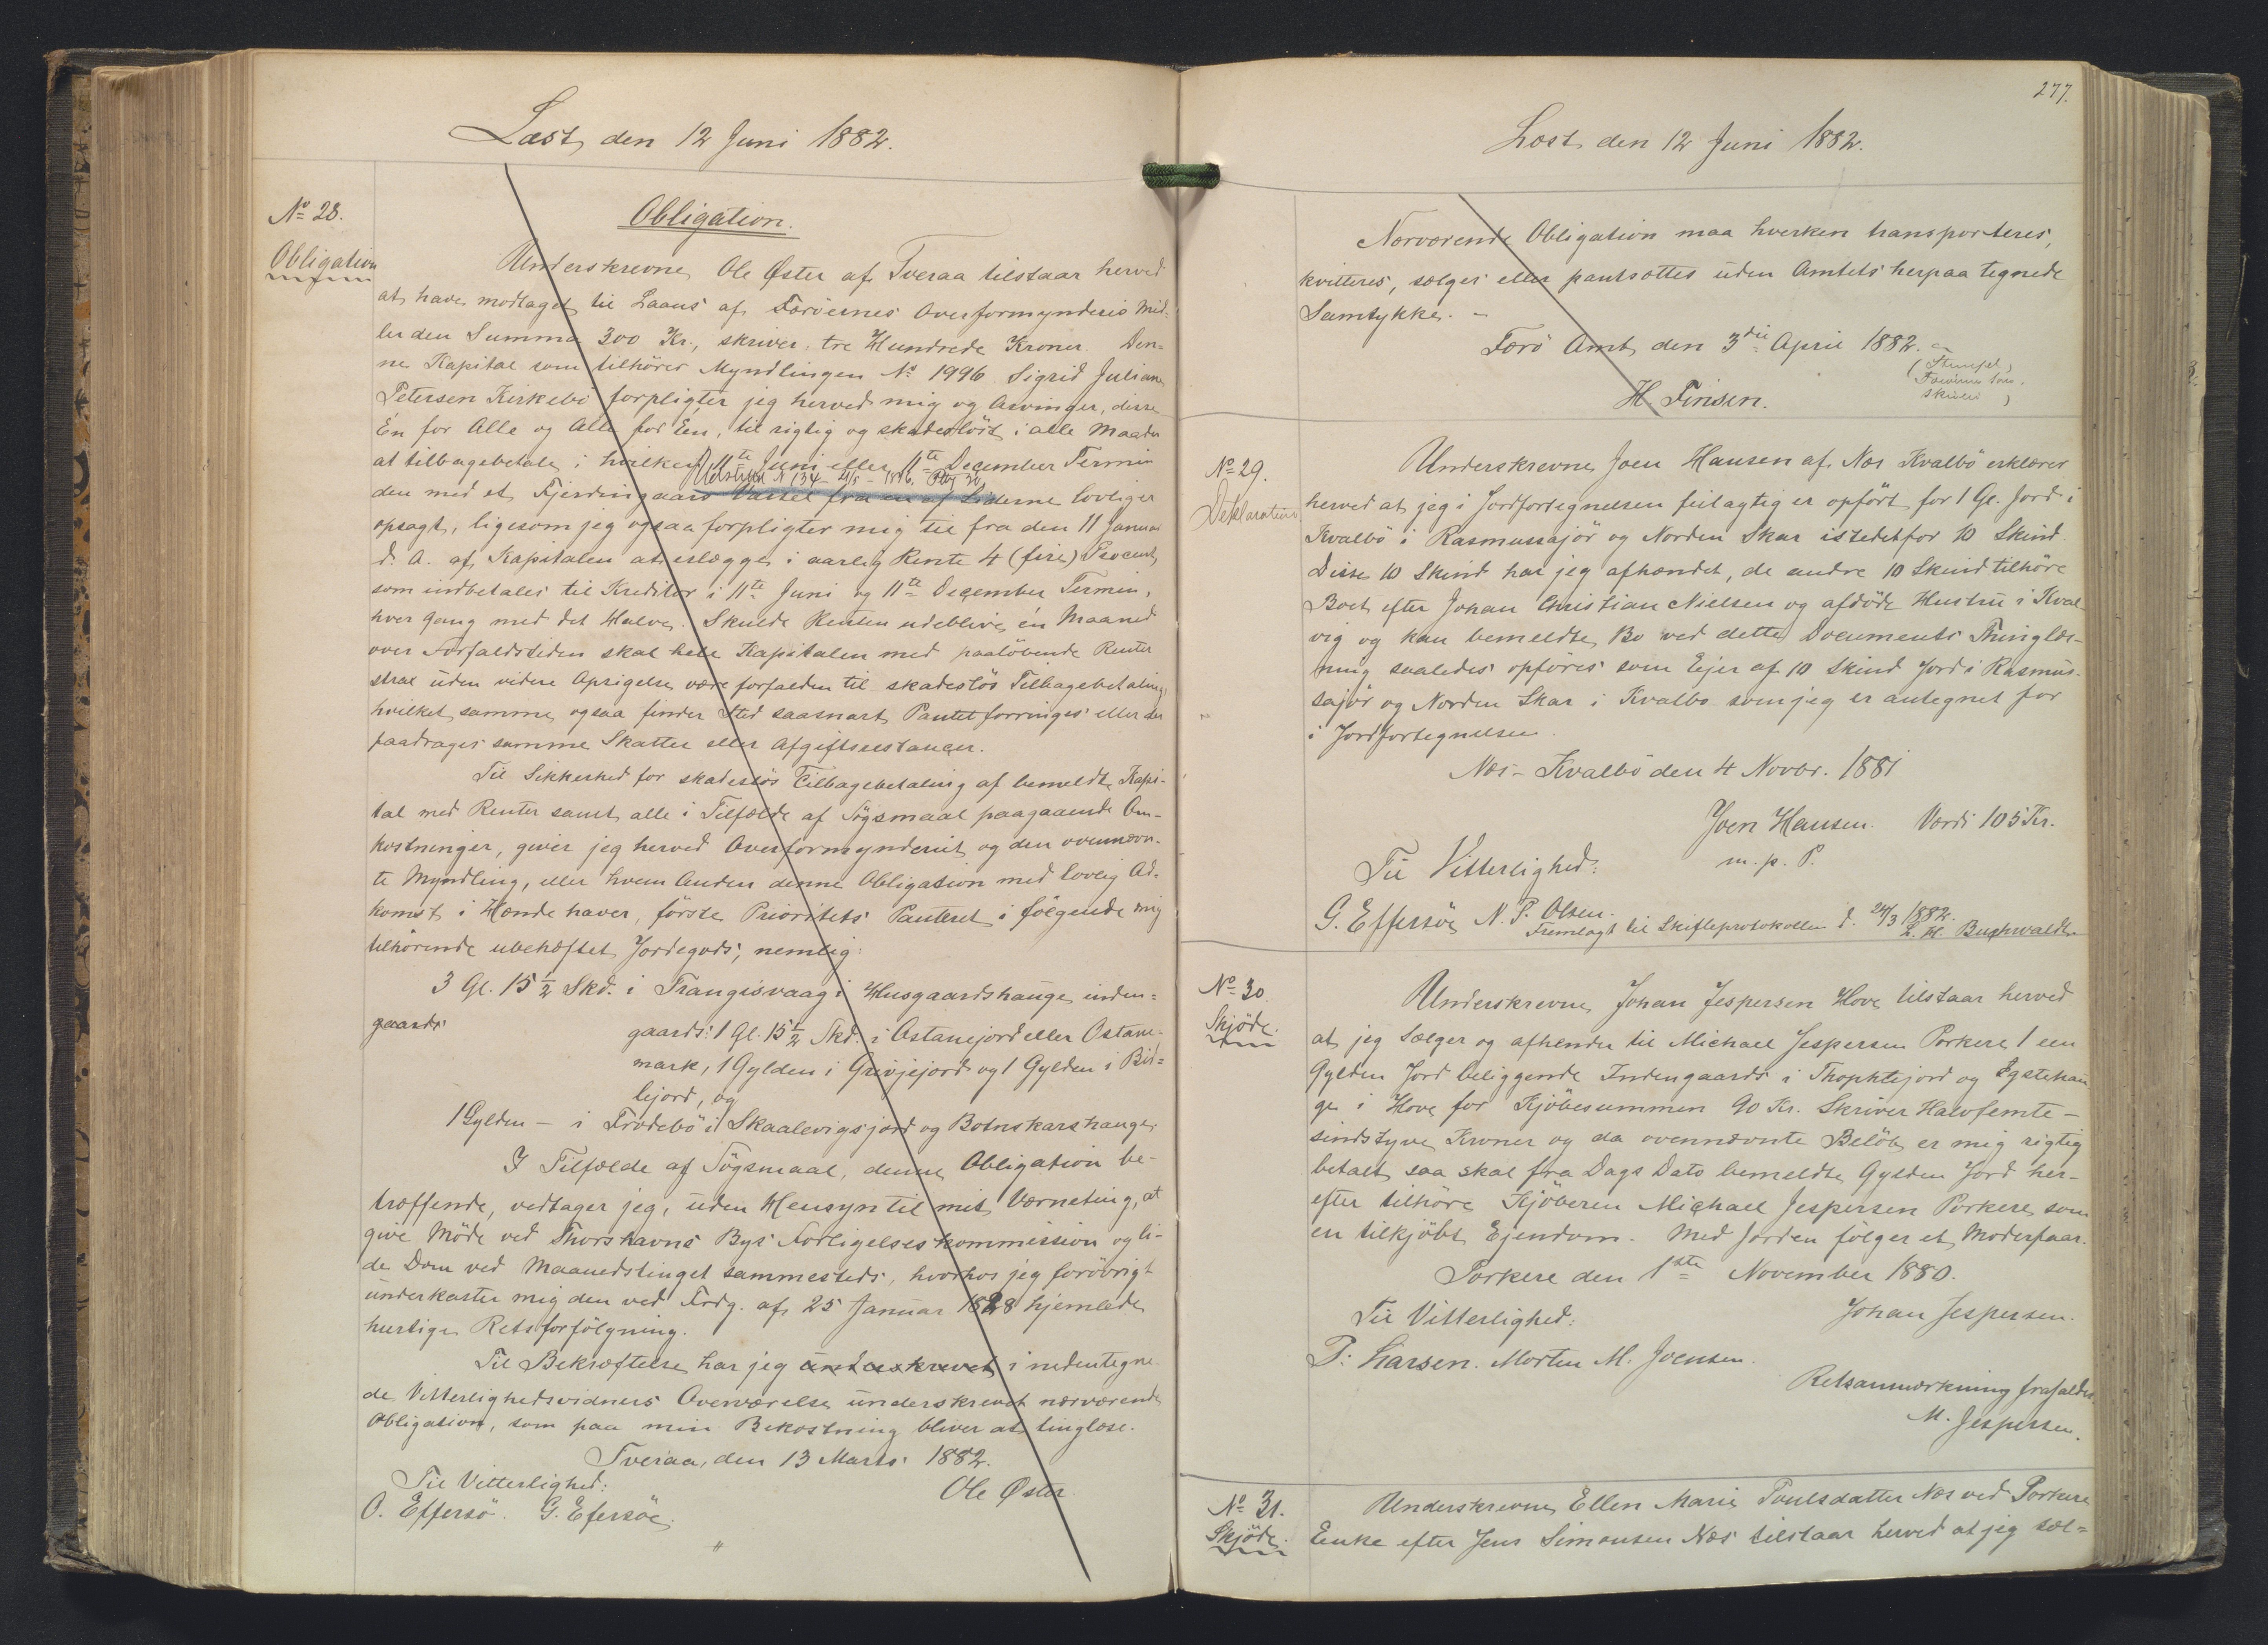 Læst den 12 Juni 1882.
No 28.
Obligation
Obligation.
Underskrevne Ole Øster af Tveraa tilstaar herved
at have modtaget til Laans af Færöernes Overformynderis Mid-
ler den Summa 300 Kr., skriver tre Hundrede Kroner. Den-
ne Kapital som tilhörer Myndlingen No 1996 Sigrid Juliane
Petersen Kirkebö forpligter jeg herved mig og Arvinger, disse
Én for Alle og Alle for Én, til rigtig og skadeslöst i alle Maader
at tilbagebetale i hvilken 11te Juni eller 11te December Termin
Udslettet N 134 - 1896.
den med et Fjerdingaars Varsel fra en af Siderne lovliger
opsagt, ligesom jeg ogsaa forpligter mig til fra den 11 Januar
d. A. af Kapitalen at erlægge i aarlig Rente 4 (fire) Procent,
som indbetales til Kreditor i 11te Juni og 11te December Termin,
hver Gang med det Halve. Skulde Renten udeblive én Maaned
over Forfaldstiden skal hele Kapitalen med paalöbende Renter
strax uden videre Opsigelse være forfalden til skadeslös Tilbagebetaling
hvilket samme ogsaa finder Sted saasnart Pantet forringes eller der
paadrages samme Skatter eller Afgiftsrestancer.
Til Sikkerhed for skadeslös Tilbagebetaling af bemeldte Kapi-
tal med Renter samt alle i Tilfælde af Sögsmaal paagaaende Om-
kostninger, giver jeg herved Overformynderiet og den ovennævn-
te Myndling, eller hvem Anden denne Obligation med lovlig Ad-
komst i Hænde haver, förste Prioritets Panteret i fölgende mig
tilhörende ubehæftet Jordegods, nemlig:
3 Gl. 15 1/2 Skd. i Trangisvaag i Husgaardshauge inden=
gaards
gaards: 1 Gl. 15 1/2 Skd. i Ostanejord eller Ostane-
mark, 1 Gylden i Grivjejord og 1 Gylden i Bir=
lijord, og
1 Gylden - i Frodebö i Skaalevigsjord og Botnskarshauge.
I Tilfælde af Sögsmaal, denne Obligation be-
træffende, vedtager jeg, uden Hensyn til mit Værneting, at
give Möde ved Thorshavns Bys Forligelseskommission og li-
de Dom ved Maanedstinget sammesteds, hvorhos jeg forövrigt
underkaster mig den ved Frdg. af 25 Januar 1828 hjemlede
hurtige Retsforfölgning.
Til Bekræftelse har jeg underskrevet i nedentegne-
de Vitterlighedsvidners Overværelse underskrevet nærværende
Obligation, som paa min Bekostning bliver at tinglæse.
Tveraa, den 13 Marts 1882.
Til Vitterlighed:
Ole Øster
O. Effersö. G. Efersöe.
277.
Læst den 12 Juni 1882.
Nærværende Obligation maa hverken transporteres,
kvitteres, sælges eller pantsættes uden Amtets herpaa tegnede
Samtykke. -
Færö Amt, den 3die April 1882.
(Stempel
H. Finsen.
No 29.
Deklaration
Underskrevne Joen Hansen af Næs Kvalbö erklærer
herved at jeg i Jordfortegnelsen feilagtig er opfört for 1 Gl. Jord i
Kvalbö i Rasmussajör og Norden Skar istedetfor 10 Skind.
Disse 10 Skind har jeg afhændet, de andre 10 Skind tilhöre
Boet efter Johan Christian Nielsen og afdöde Hustru i Kval-
vig og kan bemeldte Bo ved dette Documents Thinglæs-
ning saaledes opföres som Eier af 10 Skind Jord i Rasmus-
sajör og Norden Skar i Kvalbö som jeg er antegnet for
i Jordfortegnelsen.
Næs - Kvalbö den 4 Novbr. 1881
Joen Hansen. Værdi 105 Kr.
m. p. P.
Til Vitterlighed:
G. Effersöe N. P. Olsen.
Fremlagt til Skifteprotokollen d. 24/3 1882.
Buchwaldt
No 30.
Skjöde.
Underskrevne Johan Jespersen Hove tilstaar herved
at jeg sælger og afhender til Michael Jespersen Porkere 1 een
Gylden Jord beliggende Indengaards i Thophtejord og Egstehau
ge i Hove for Kjöbesummen 90 Kr. Skriver Halvfemte-
sindstyve Kroner og da ovennævnte Belöb er mig rigtig
betalt saa skal fra Dags Dato bemeldte Gylden Jord her-
efter tilhöre Kjöberen Michael Jespersen Porkere som
en tilkjöbt Ejendom. Med Jorden fölger et Moderfaar.
Porkere den 1ste November 1880.
Til Vitterlighed:
Johan Jespersen.
P. Larsen. Morten M. Joensen.
Retsanmærkning frafaldes
M. Jespersen.
No 31.
Skjöde.
Underskrevne Ellen Marie Poulsdatter Næs ved Porkere
Enke efter Jens Simonsen Næs tilstaar herved at jeg sæl=